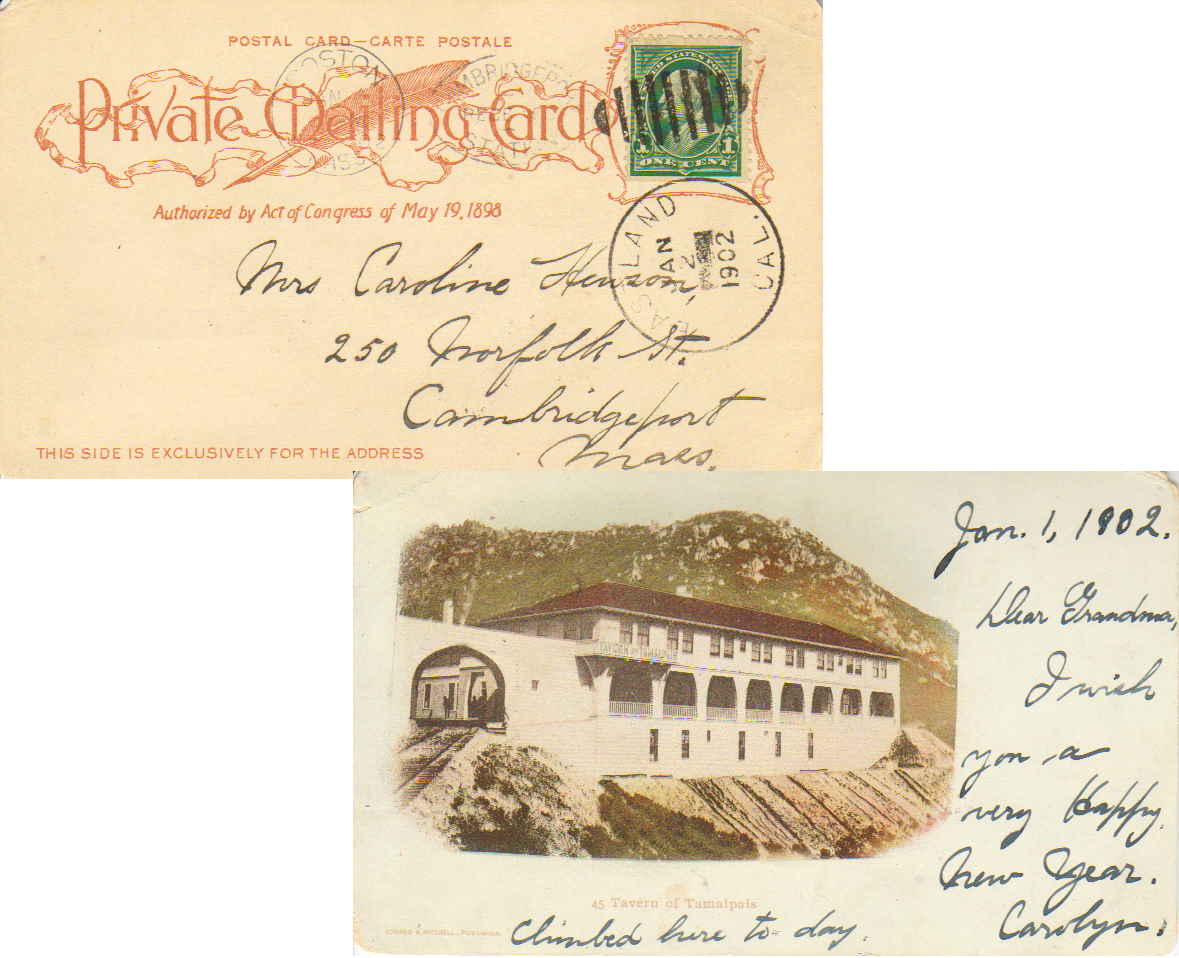 POSTAL CARD—CARTE POSTALE
Private Mailing Card
Authorized by Act of Congress of May 19, 1898
BOSTON
MASS
UNITED STATES POSTAGE
1 1
ONE CENT
LAND
CAL.
JAN
2
1902
Mrs Caroline Henson,
250 Norfolk St.
Cambridgeport
Mass.
THIS SIDE IS EXCLUSIVELY FOR THE ADDRESS
Jan. 1, 1902.
Dear Grandma,
I wish
you a
very Happy
New Year.
Carolyn.
TAVERN OF TAMALPAIS
45 Tavern of Tamalpais
Climbed here to-day.